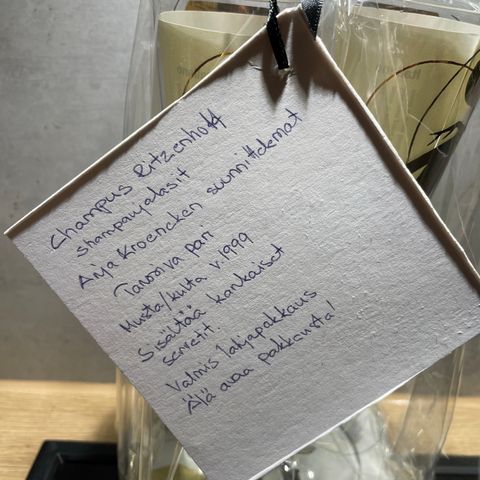 Champus Ritzenhoff
shampanjalasit
Anja Kroencken suunnittelemat
Tarjoiva pari
Musta/kulta v.1999
Sisältää kankaiset
servetit.
Valmis lahjapakkaus
Älä avaa pakkausta!